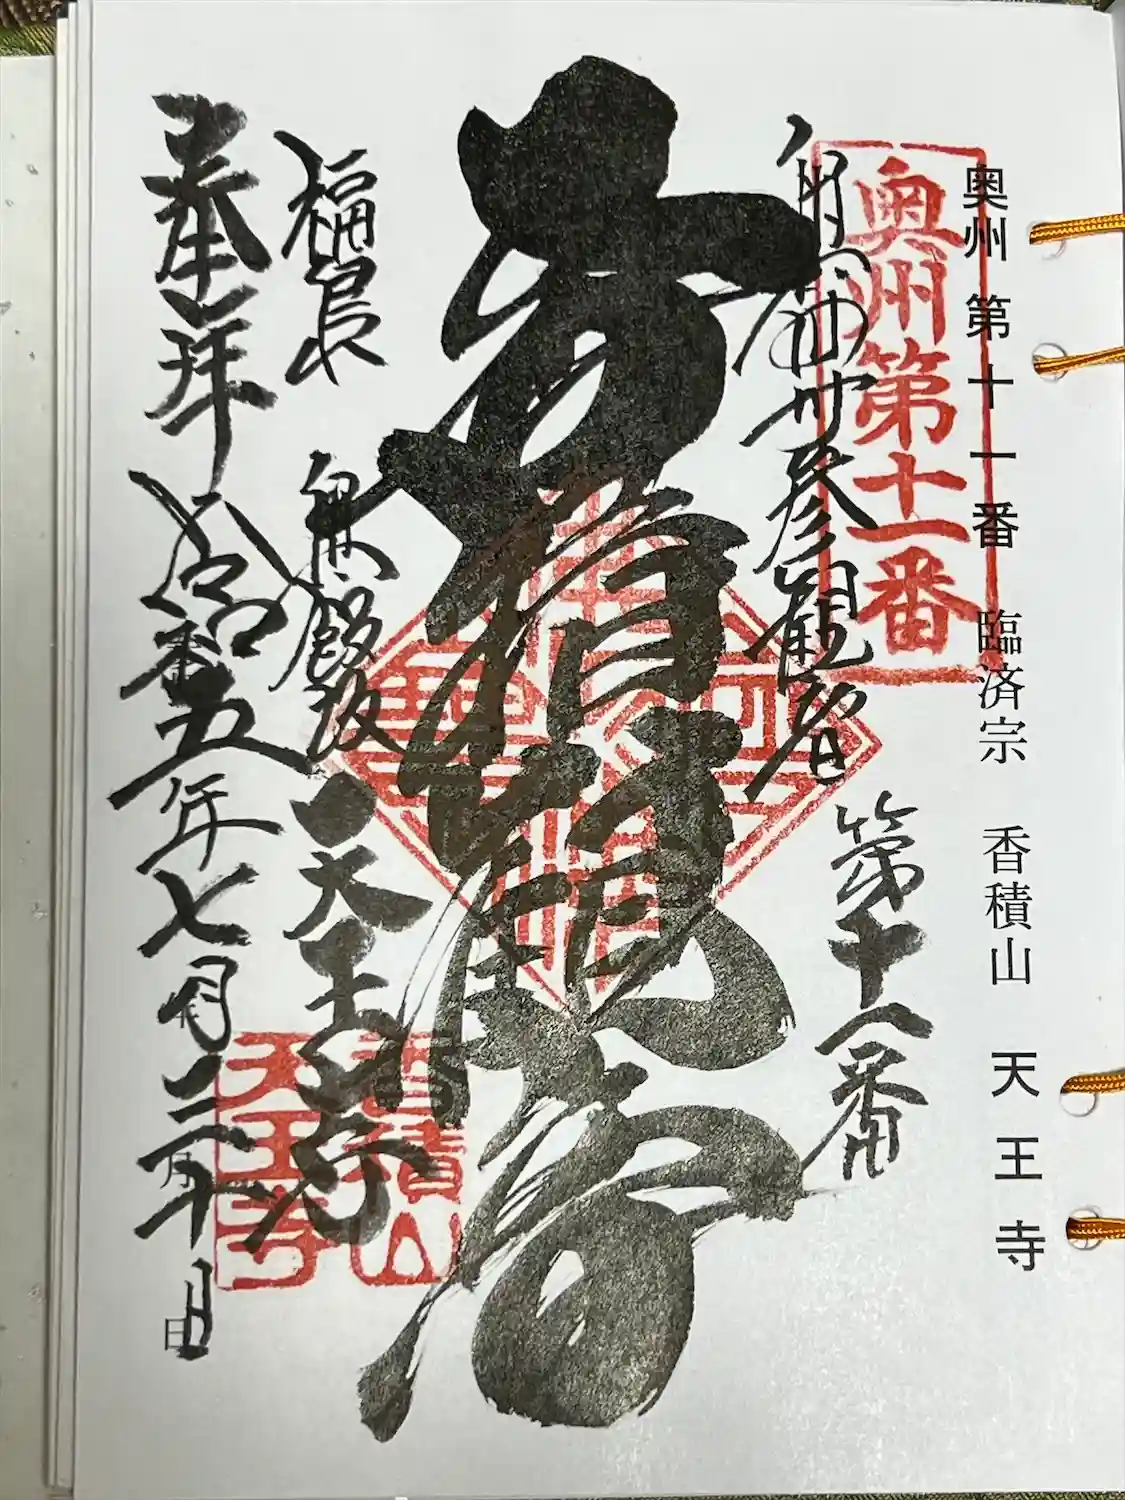 奥州第十一番 臨済宗 香積山 天王寺
奥州第十一番
奥州
卅参観音
第十一番
香積観音
福島
飯坂
天王寺
香積山
天王寺
奉拝
令和五年七月二十日
月
日